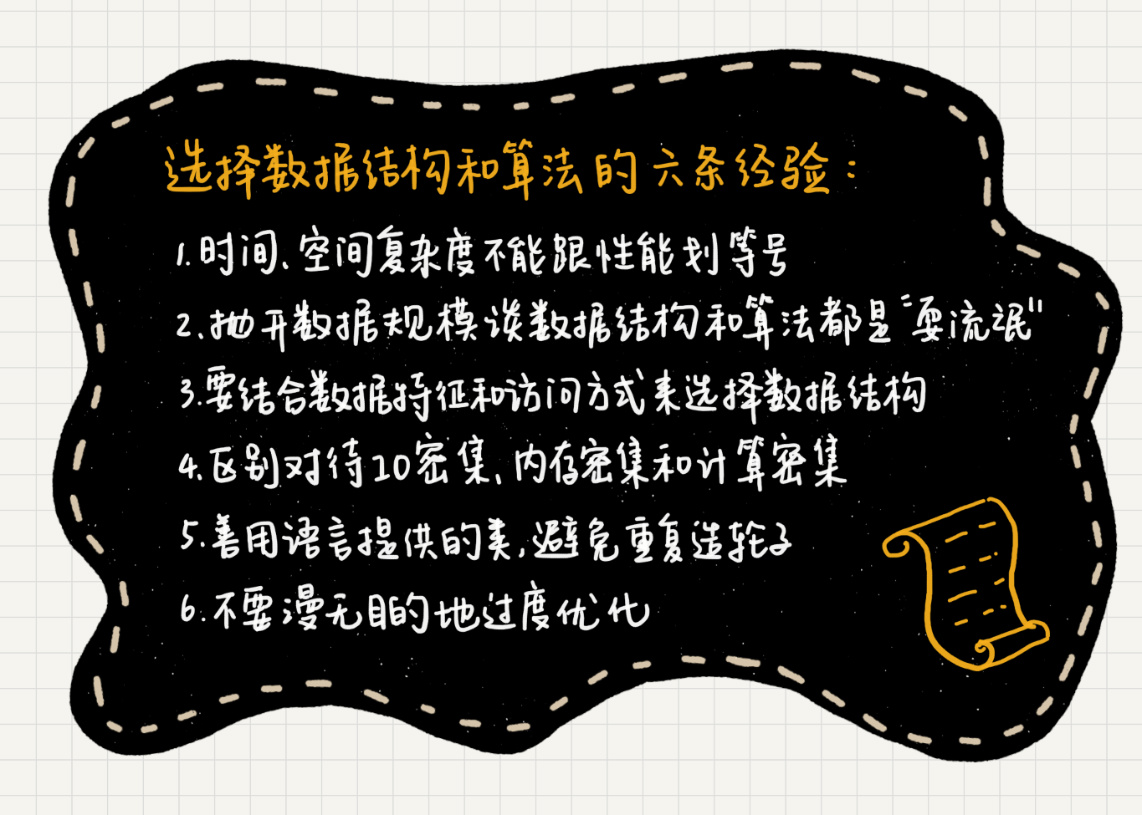 选择数据结构和算法的六条经验：
1.时间、空间复杂度不能跟性能划等号
2.抛开数据规模谈数据结构和算法都是“耍流氓”
3.要结合数据特征和访问方式来选择数据结构
4.区别对待IO密集、内存密集和计算密集
5.善用语言提供的类,避免重复造轮子
6.不要漫无目的地过度优化